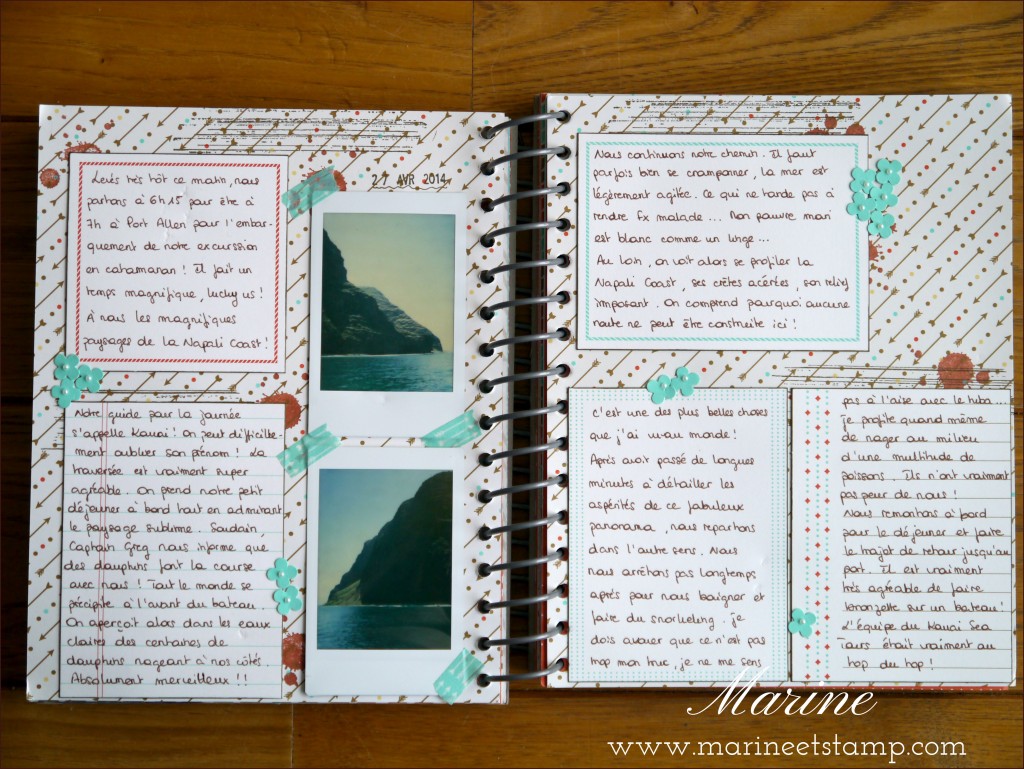 Levés très tôt ce matin, nous
partons à 6h15 pour être à
7h à Port Allen pour l'embar-
quement de notre excurssion
en catamaran ! Il fait un
temps magnifique, lucky us !
À nous les magnifiques
paysages de la Napali Coast !
27 AVR 2014
Notre guide pour la journée
s'appelle Kauai ! On peut difficile-
ment oublier son prénom ! La
traversée est vraiment super
agréable. On prend notre petit
déjeuner à bord tout en admirant
le paysage sublime. Soudain,
Captain Greg nous informe que
des dauphins font la course
avec nous ! Tout le monde se
précipite à l'avant du bateau.
On aperçoit alors dans les eaux
claires des centaines de
dauphins nageant à nos côtés.
Absolument merveilleux !!
Nous continuons notre chemin. Il faut
parfois bien se cramponner, la mer est
légèrement agitée. Ce qui ne tarde pas à
rendre Fx malade... Mon pauvre mari
est blanc comme un linge...
Au loin, on voit alors se profiler la
Napali Coast, ses crêtes acérées, son relief
imposant. On comprend pourquoi aucune
route ne peut être construite ici !
c'est une des plus belles choses
que j'ai vu au monde !
Après avoir passé de longues
minutes à détailler les
aspérités de ce fabuleux
panorama, nous repartons
dans l'autre sens. Nous
nous arrêtons pas longtemps
après pour nous baigner et
faire du snorkeling. Je
dois avouer que ce n'est pas
trop mon truc, je ne me sens
pas à l'aise avec le tuba...
Je profite quand même
de nager au milieu
d'une multitude de
poissons. Ils n'ont vraiment
pas peur de nous !
Nous remontons à bord
pour le déjeuner et faire
le trajet de retour jusqu'au
port. Il est vraiment
très agréable de faire
bronzette sur un bateau !
L'équipe du Kauai Sea
Tours était vraiment au
top du top !
Marine
www.marineetstamp.com